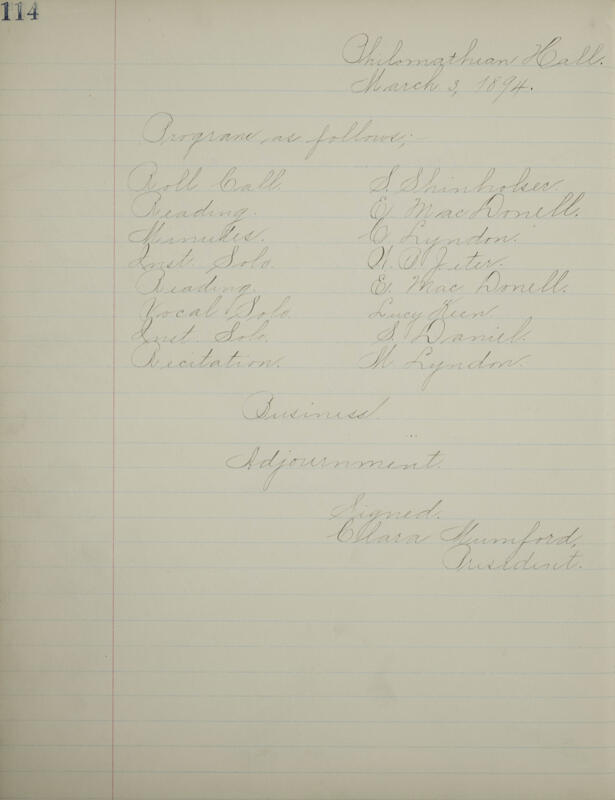 114
Philomathean Hall.
March 3, 1894.
Program as follows;—
Roll Call. S. Shinholser.
Reading. E. MacDonell.
Minutes. C. Lyndon.
Inst. Solo. N. P. Jeter.
Reading. E. Mac Donell.
Vocal Solo. Lucy Keen.
Inst. Solo. S. Daniel.
Recitation. M. Lyndon.
Business.
Adjournment.
Signed.
Clara Mumford,
President.